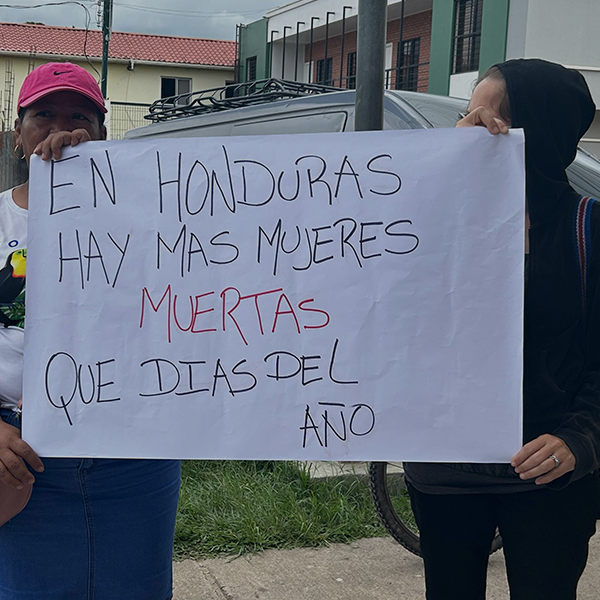 EN HONDURAS
HAY MAS MUJERES
MUERTAS
QUE DIAS DEL
AÑO